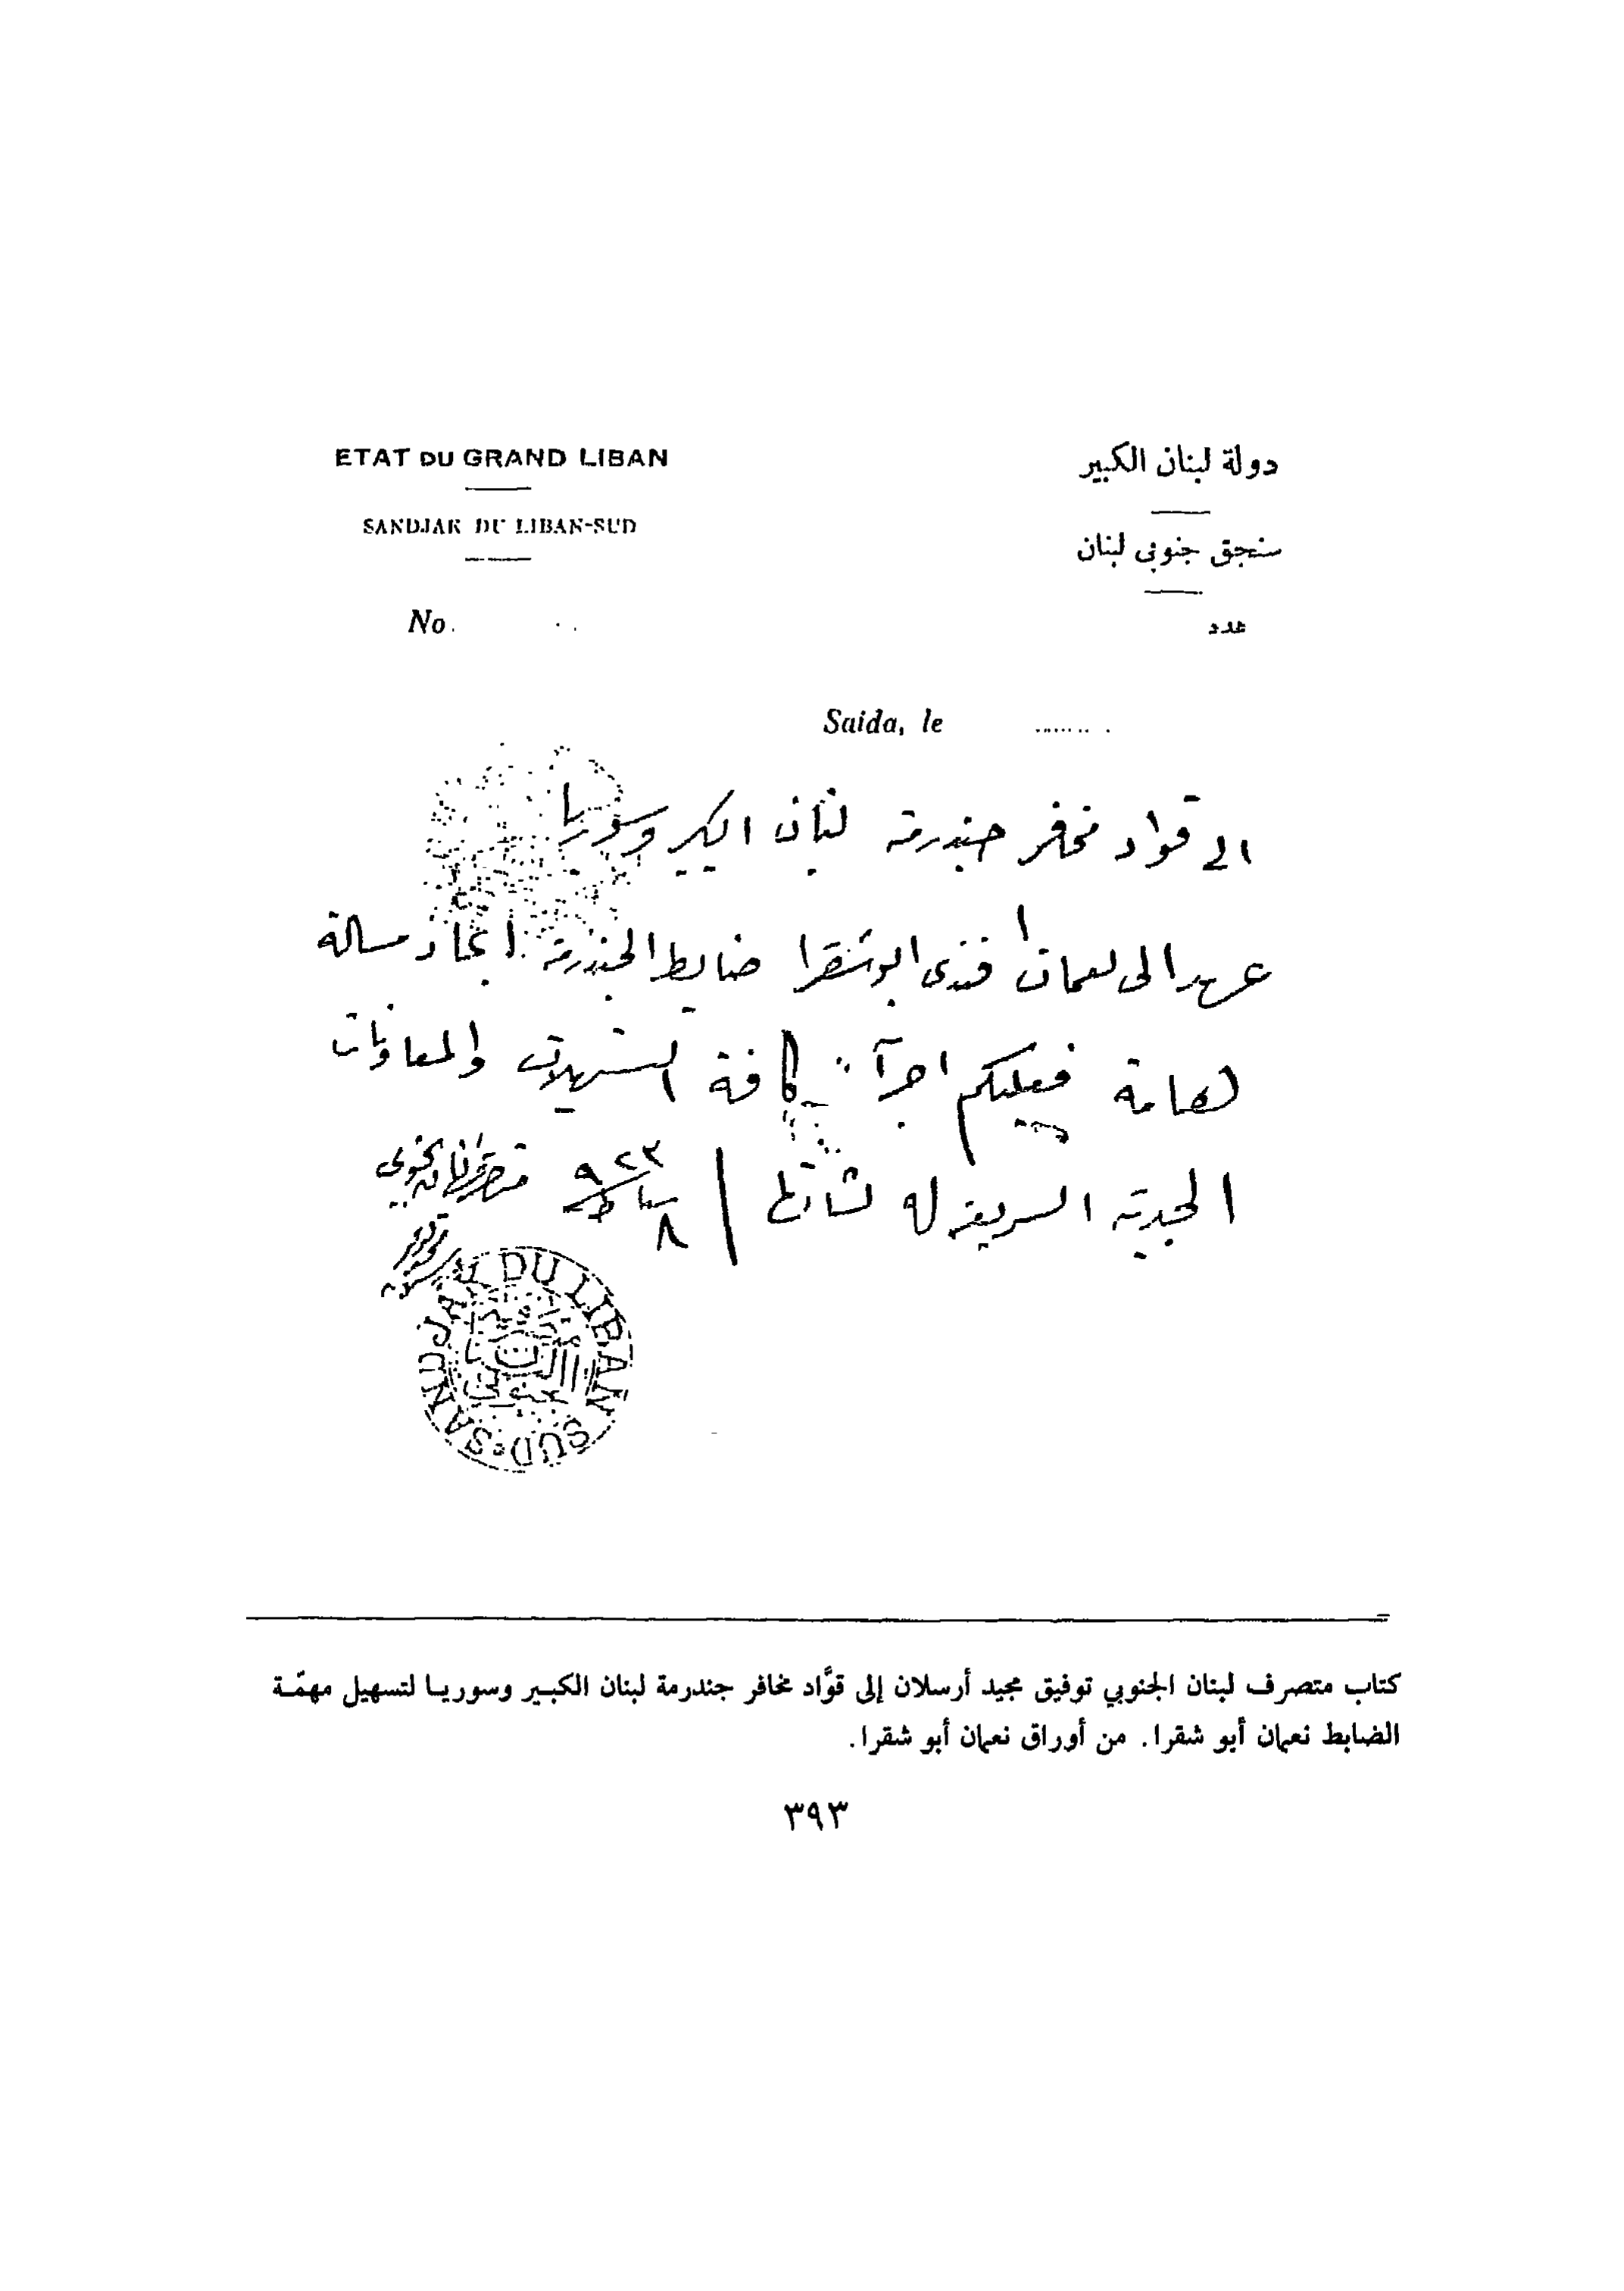 ETAT DU GRAND LIBAN
دولة لبنان الكبير
SANDJAK DU LIBAN-SUD
سنجق جنوبي لبنان
No.
عدد
Saida, le
الى قواد مخافر جندرمة لبنان الكبير وسوريا
عهد الى نعمان افندي ابو شقرا ضابط الجندرمة مسالة
هامة فعليكم اجرآء كافة التسهيلات والمعاونات
الجدية السريعة له
٨ شباط ٩٢٣
SANDJAK DU LIBAN SUD
كتاب متصرف لبنان الجنوبي توفيق مجيد أرسلان إلى قوَّاد مخافر جندرمة لبنان الكبير وسوريا لتسهيل مهمّة
الضابط نعمان أبو شقرا. من أوراق نعمان أبو شقرا.
٣٩٣